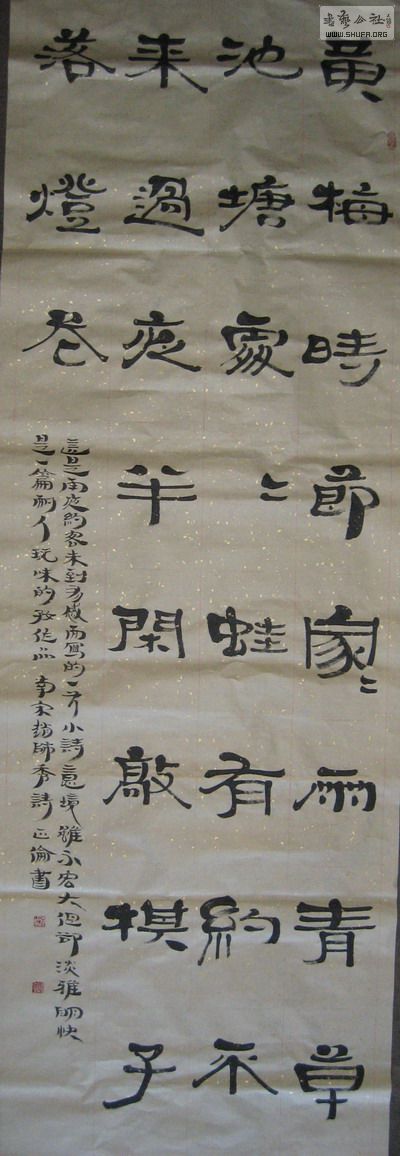 黄梅時節家〻雨青草
池塘處〻蛙有約不
来過夜半閑敲棋子
落燈花
這是雨夜約客未到有感而寫的一首小詩意境雖不宏大卻淡雅明快
是一篇耐人玩味的好作品南宋趙師秀詩正倫書
書藝公社
WWW.SHUFA.ORG